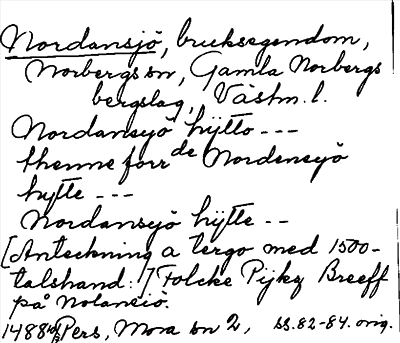 Nordansjö, bruksegendom,
Norbergs sn, Gamla Norbergs
bergslag, Västm. l.
Nordansyö hÿtto ---
thenne forrde Nordensyö
hytte ---
Nordansyö hÿtte --
[Anteckning a tergo med 1500-
talshand:] Folcke Pijkz Breeff
på Nolansiö.
1488 Pers, Mora sn 2, ss. 82-84. orig.